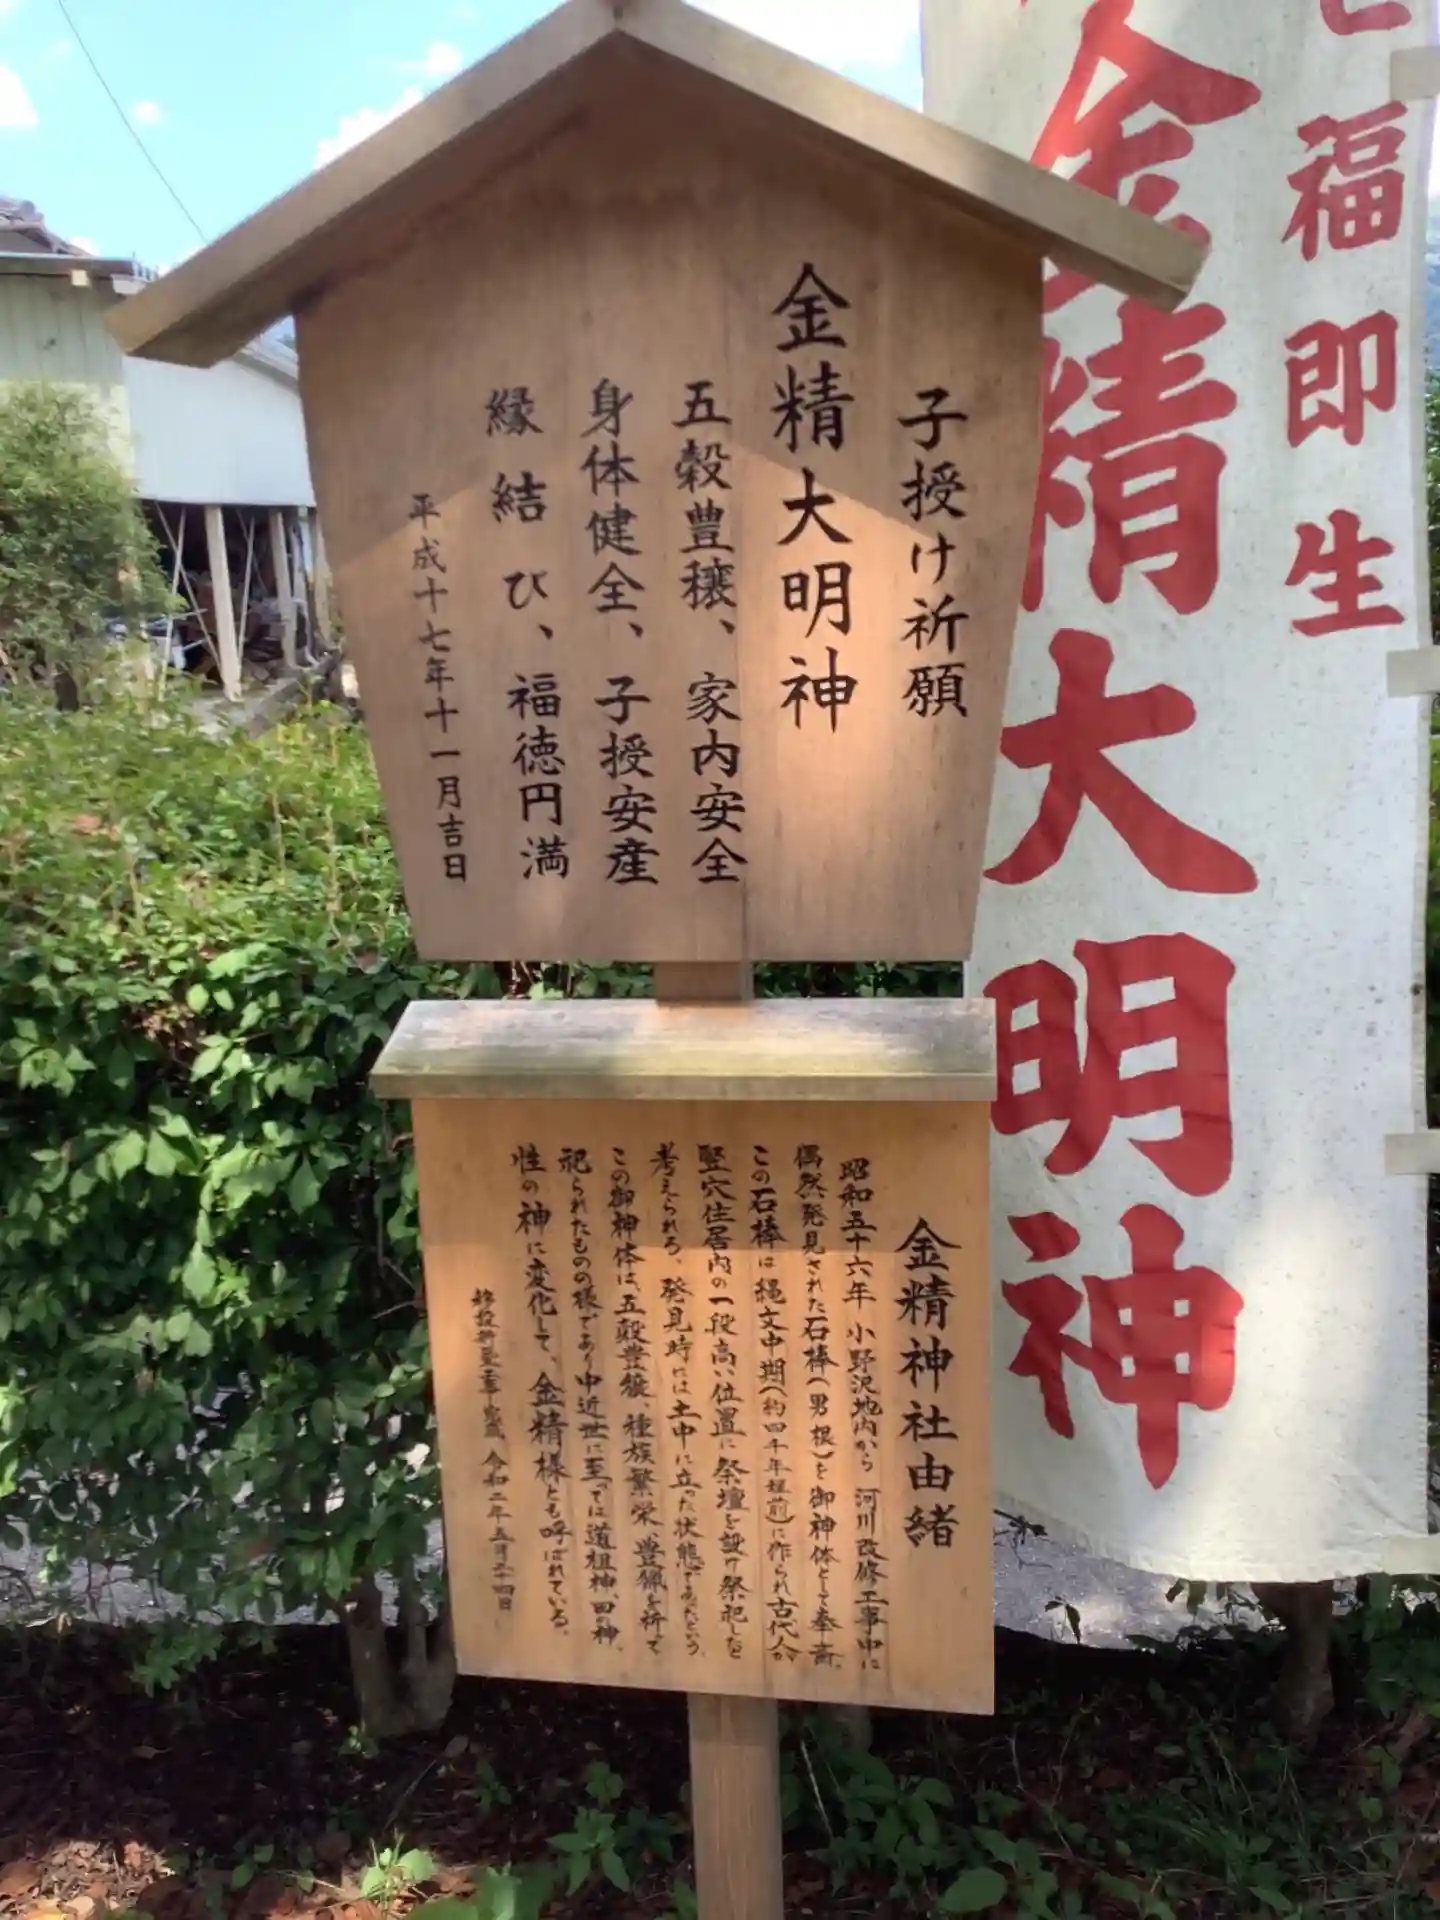 子授け祈願
金精大明神
五穀豊穣、家内安全
身体健全、子授安産
縁結び、福徳円満
平成十七年十一月吉日
金精神社由緒
昭和五十六年 小野沢地内から 河川改修工事中に
偶然発見された石棒(男根)を御神体として奉斎。
この石棒は縄文中期(約四千年程前)に作られ古代人が
竪穴住居内の一段高い位置に祭壇を設け祭祀したと
考えられる、発見時には土中に立った状態であったという。
この御神体は、五穀豊穣、種族繁栄、豊猟を祈って
祀られたものの様であり中近世に至っては道祖神、田の神、
性の神に変化して、金精様とも呼ばれている。
令和二年五月二十四日
七福即生
金精大明神